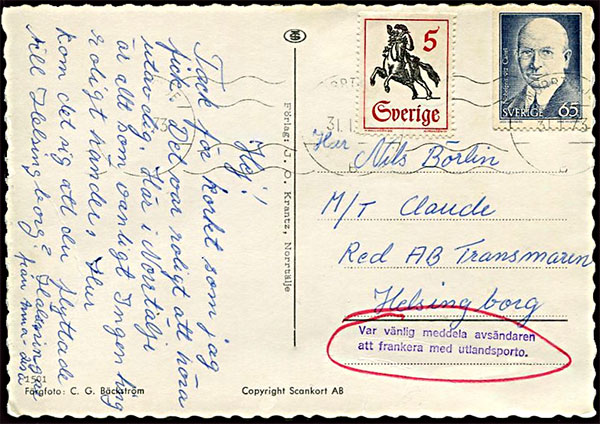 Hej!
Tack för kortet som jag
fick. Det var roligt att höra
utav dig. Här i Norrtälje
är allt som vanligt Ingen ting
roligt händer. Hur
kom det sig att du flyttade
till Helsingborg? Hälsningar
från Anna-
Förlag: J. O. Krantz, Norrtälje
5
Sverige
SVERIGE 65
31.1.
73
Herr Nils Börlin
M/T Claude
Red AB Transmarin
Helsingborg
Var vänlig meddela avsändaren
att frankera med utlandsporto.
Färgfoto: C. G. Bäckström
Copyright Scankort AB